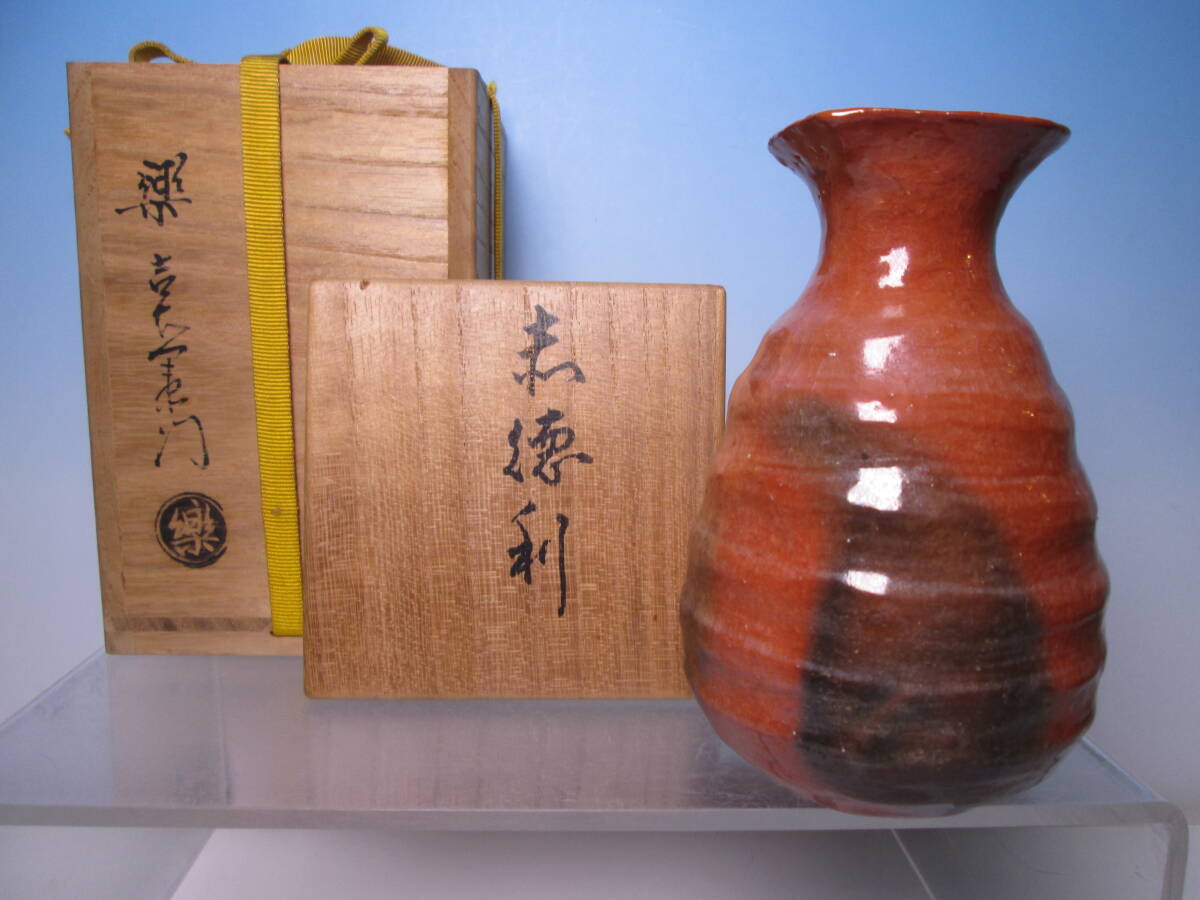 赤徳利
樂 吉左衛门
樂